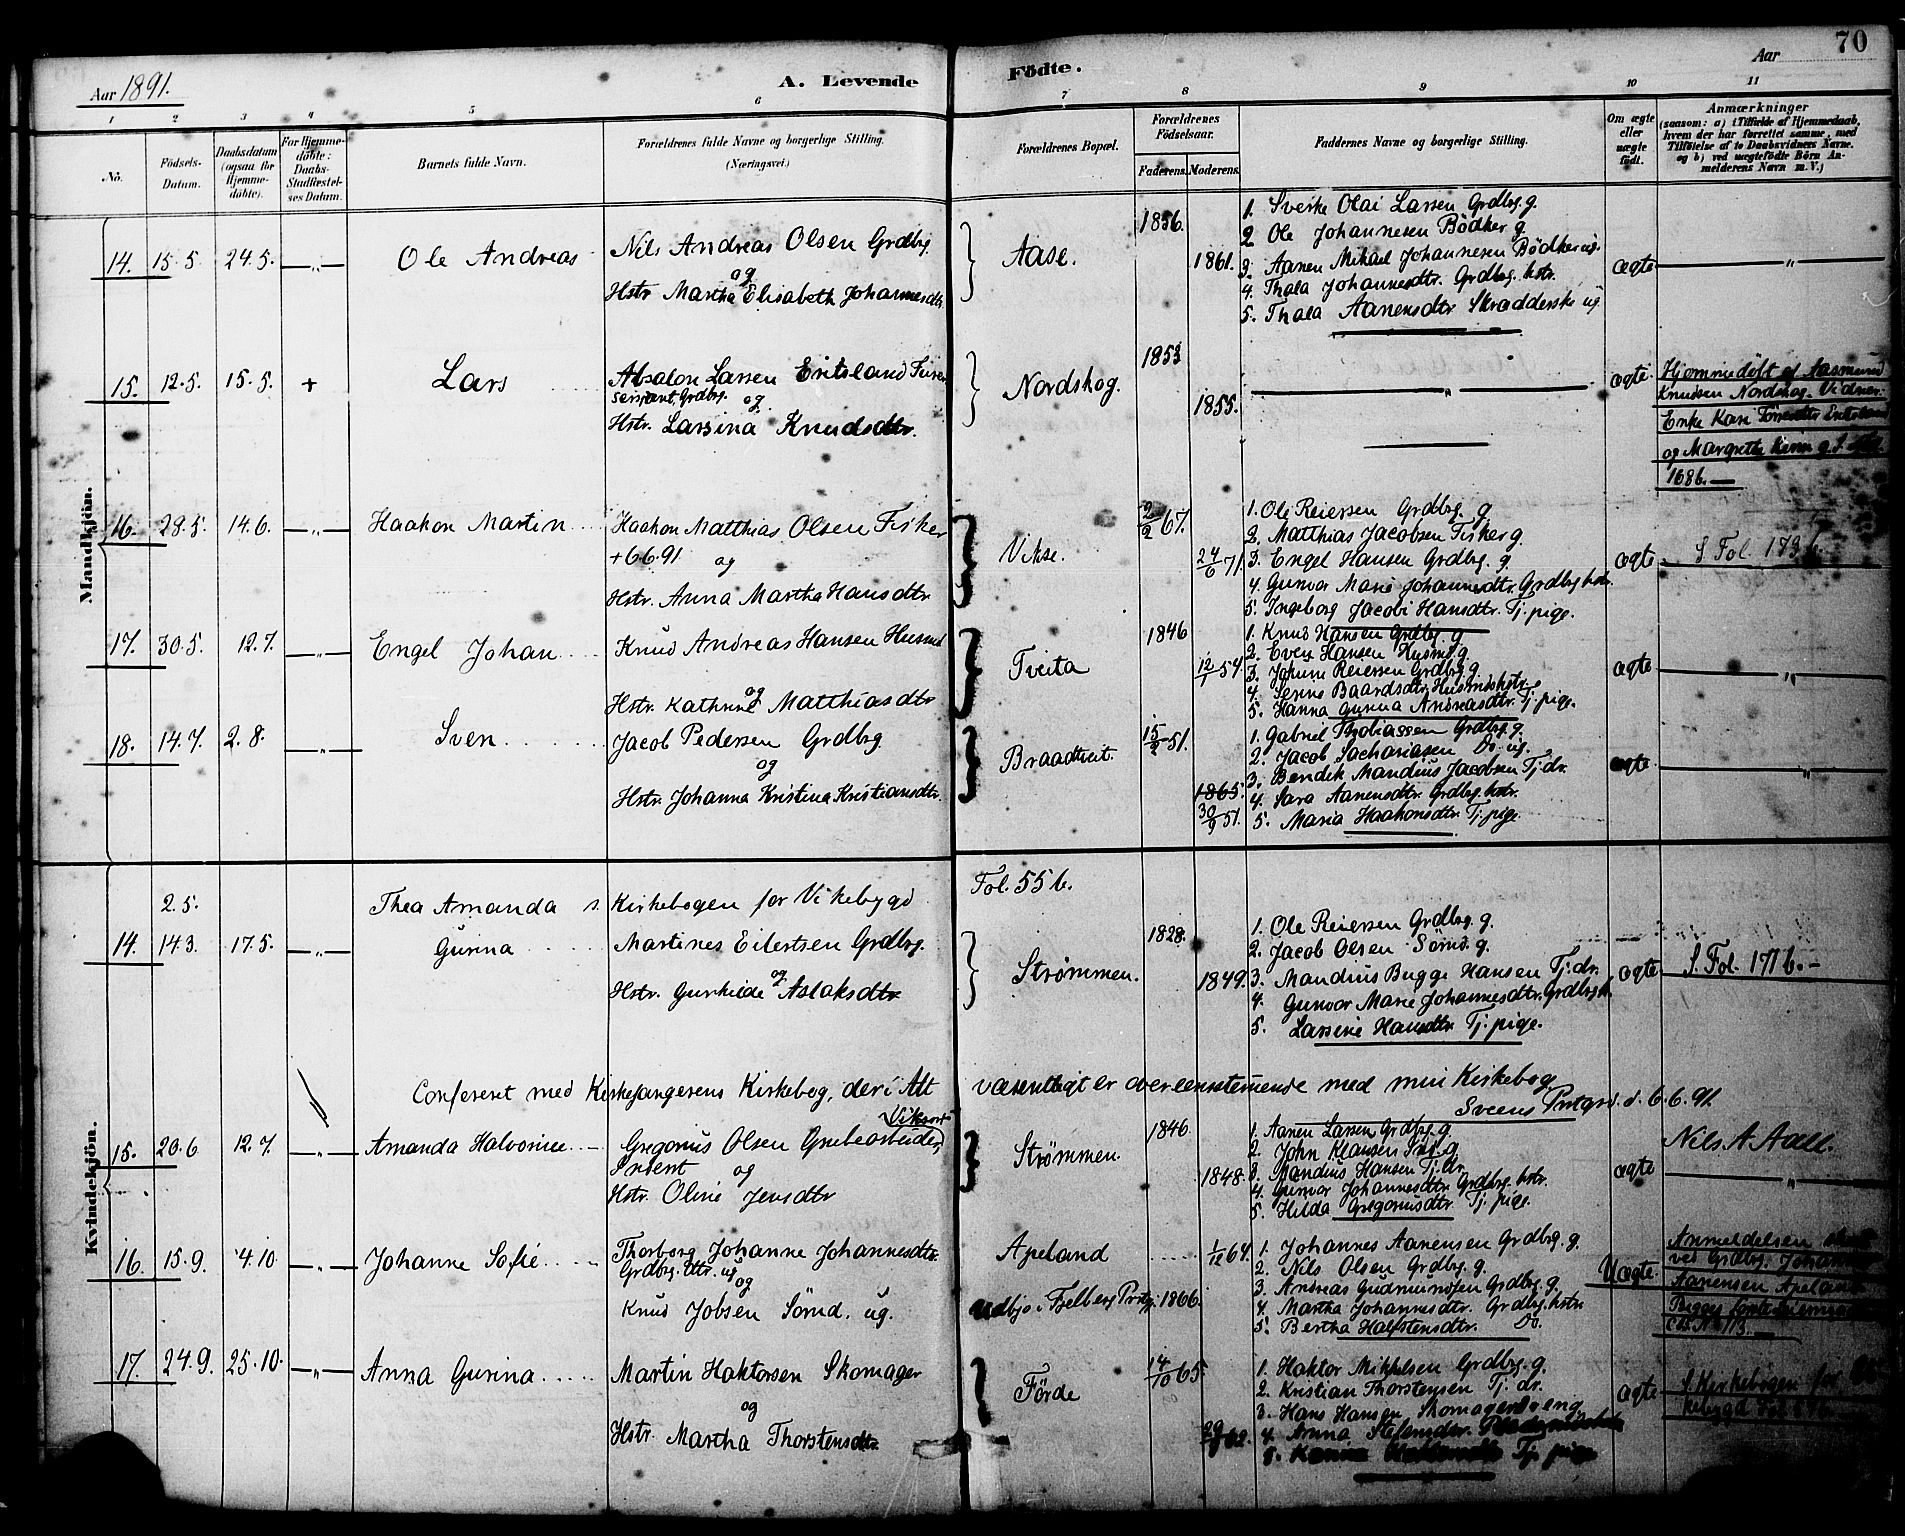 70
Aar 1891.
A. Levende Födte.
Aar
1 2 3 4 5 6 7 8 9 10 11
No.
Födsels-Datum.
Daabsdatum (ogsaa for Hjemme-döbte).
For Hjemme-döbte: Daabs-Stadfæstel-ses Datum.
Barnets fulde Navn.
Forældrenes fulde Navne og borgerlige Stilling. (Næringsvei.)
Forældrenes Bopæl.
Forældrenes Födselsaar.
Faderens. Moderens.
Faddernes Navne og borgerlige Stilling.
Om ægte eller uægte födt.
Anmærkninger
(saasom: a) i Tilfælde af Hjemmedaab,
hvem der har forrettet samme, med
Tilföielse af to Daabsvidners Navne.
og b) ved uægtefödte Börn An-
melderens Navn m.V.)
Mandkjön.
14. 15.5. 24.5. —„— Ole Andreas
Nils Andreas Olsen Grdbrg.
og
Hstr. Martha Elisabeth Johannesdtr.
Aase.
1856.
1861.
1. Sverke Olai Larsen Grdbrg. g.
2. Ole Johannesen Bödker g.
3. Aanen Mikael Johannesen Bödker ug.
4. Thala Johannesdtr. Grdbrg. hstr.
5. Thala Aanensdtr. Skradderske ug.
ægte —„—
15. 12.5. 15.5. + Lars
Absalon Larsen Eritsland
sersjant, Grdbrg. og
Hstr. Larsina Knudsdtr.
Nordskog.
1853
1855.
—„—
ægte.
Hjemmedöbt af Aasmund
Knudsen Nordskog. Vidner:
Enke Kari
og Margrethe
1686.—
16. 28.5. 14.6. —„— Haakon Martin
Haakon Matthias Olsen Fisker
+6.6.91 og
Hstr. Anna Martha Hansdtr.
Vikse.
2/2 67.
24/6 71.
1. Ole Reiersen Grdbrg. g
2. Matthias Jacobsen Fisker g.
3. Engel Hansen Grdbrg. g.
4. Gunvor Marie Johannesdtr. Grdbrg hstr.
5. Ingeborg Jacobi Hansdtr. Tj. pige.
ægte
S. Fol. 173
17. 30.5. 12.7. —„— Engel Johan
Knud Andreas Hansen Husmd
og
Hstr. Kathrine Matthiasdtr
Tveita
1846
12/1 54.
1. Knud Hansen Grdbrg. g
2. Even Hansen Husmd. g
3. Johan Reiersen Grdbrg. g
4. Serine Baardsdtr. Husmdshstr.
5. Hanna Gurina Andreasdtr. Tj. pige.
ægte —„—
18. 14.7. 2.8. —„— Sven
Jacob Pedersen Grdbrg
og
Hstr. Johanna Kristina Kristiansdtr.
Braadtveit.
15/2 51.
1865.
30/9 51.
1. Gabriel Thobiassen Grdbrg. g.
2. Jacob Sachariasen Do. ug.
3. Bendik Mandius Jacobsen Tj. dr.
4. Sara Aanensdtr. Grdbrg. hstr.
5. Maria Haakonsdtr. Tj. pige.
ægte —„—
Kvindekjön.
2.5. Thea Amanda s. Kirkebogen for Vikebygd Fol. 55 b.
14. 14.3. 17.5. —„— Gurina
Martines Eilertsen Grdbrg.
og
Hstr. Gunhilde Aslaksdtr
Strømmen.
1828.
1849.
1. Ole Reiersen Grdbrg. g.
2. Jacob Olsen Sömd. g.
3. Mandius Bugge Hansen Tj. dr.
4. Gunvor Marie Johannesdtr. Grdbrg. h.
5. Larsine Hansdtr. Tj. pige.
ægte S. Fol. 171 b.—
Confereret med Kirkesangerens Kirkebog, der i Alt væsentligt er overeensstemmende med min Kirkebog
Sveens Prstgrd. d. 6.6.91.
Nils A Aall.
15. 20.6 12.7. —„— Amanda Halvorine
Gregorius Olsen Grubearbeider,
og
Hstr. Oline Jensdtr
Strømmen.
1846.
1848.
1. Aanen Larsen Grdbrg. g.
2. John Klausen
3. Mandius Hansen Tj. dr.
4. Gunvor Johannesdtr. Grdbrg. hstr.
5. Hilda Gregoriusdtr. Tj. pige.
ægte —„—
16. 15.9. 4.10. —„— Johanne Sofie
Thorborg Johanne Johannesdtr.
Grdbrg. dtr. ug.
og
Knud Jobsen Sömd. ug.
Apeland
Udbjo i Fjelberg Prstgj. 1866.
64.
1. Johannes Aanensen Grdbrg. g.
2. Nils Olsen Grdbrg. g.
3. Andreas Gudmundsen Grdbrg. g.
4. Martha Johannesdtr. Grdbrg. hstr.
5. Bertha Halstensdtr. Do.
Uægte.
Anmeldelsen
ved Grdbrg. Johannes
Aanensen Apeland
Begges
17. 24.9. 25.10. —„— Anna Gurina
Martin Haktorsen Skomager
og
Hstr. Martha Thorstensdtr.
Förde
14/10 65.
62.
1. Haktor Mikkelsen Grdbrg. g.
2. Kristian Thorstensen Tj. dr.
3. Hans Hansen Skomagersveng
4. Anna
5. Tj. pige
ægte
S. Kirkebogen for